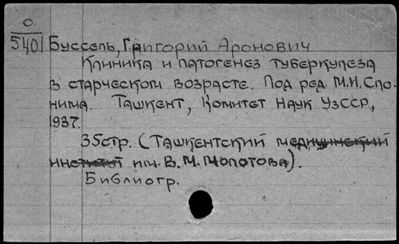 О.
540 Буссель, Григорий Аронович
Клиника и патогенез туберкулеза
в старческом возрасте. Под ред. М.И. Сло-
нима. Ташкент, Комитет наук УзССР,
1937.
35стр. (Ташкентский медицинский
институт им. В. М. Молотова).
Библиогр.